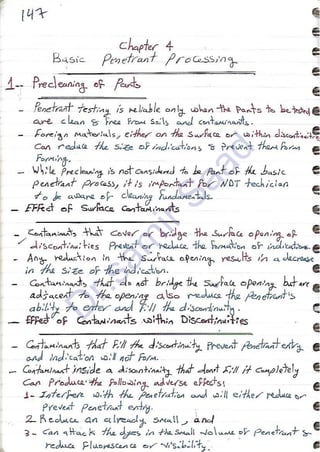 147
Chapter 4
Basic Penetrant Processing
1-- Precleaning of Parts
- Penetrant Testing is reliable only when the Parts to be tested
are clean & Free from Soils and contaminants.
- Foreign Materials, either on the surface or within discontinuities
Can reduce the size of indications & Prevent them Form
Forming.
- While Precleaning is not considered to be Part of the basic
penetrant process, it is important for NDT techician
to be aware of cleaning fundamentals.
- Effect of Surface Contaminants
- Contaminants that cover or bridge the surface opening of
discontinuities Prevent or reduce the formation of indication.
- Any reduction in the surface opening results in a decrease
in the size of the indication.
- Contaminants that do not bridge the surface opening but are
adjacent to the opening also reduce the penetrant's
ability to enter and Fill the discontinuity.
- Effect of Contaminants within Discontinuities
- Contaminants that Fill the discontinuity Prevent Penetrant entry
and indication will not Form.
- Contaminant inside a discontinuity that dont Fill it Completely
Can Produce the following adverse effects:
1- Interfere with the Penetration and will either reduce or
Prevent penetrant entry.
2 Reduce an already small, and
3- Can attack the dyes in the small volume of Penetrant &
reduce Fluorescence or visibility.